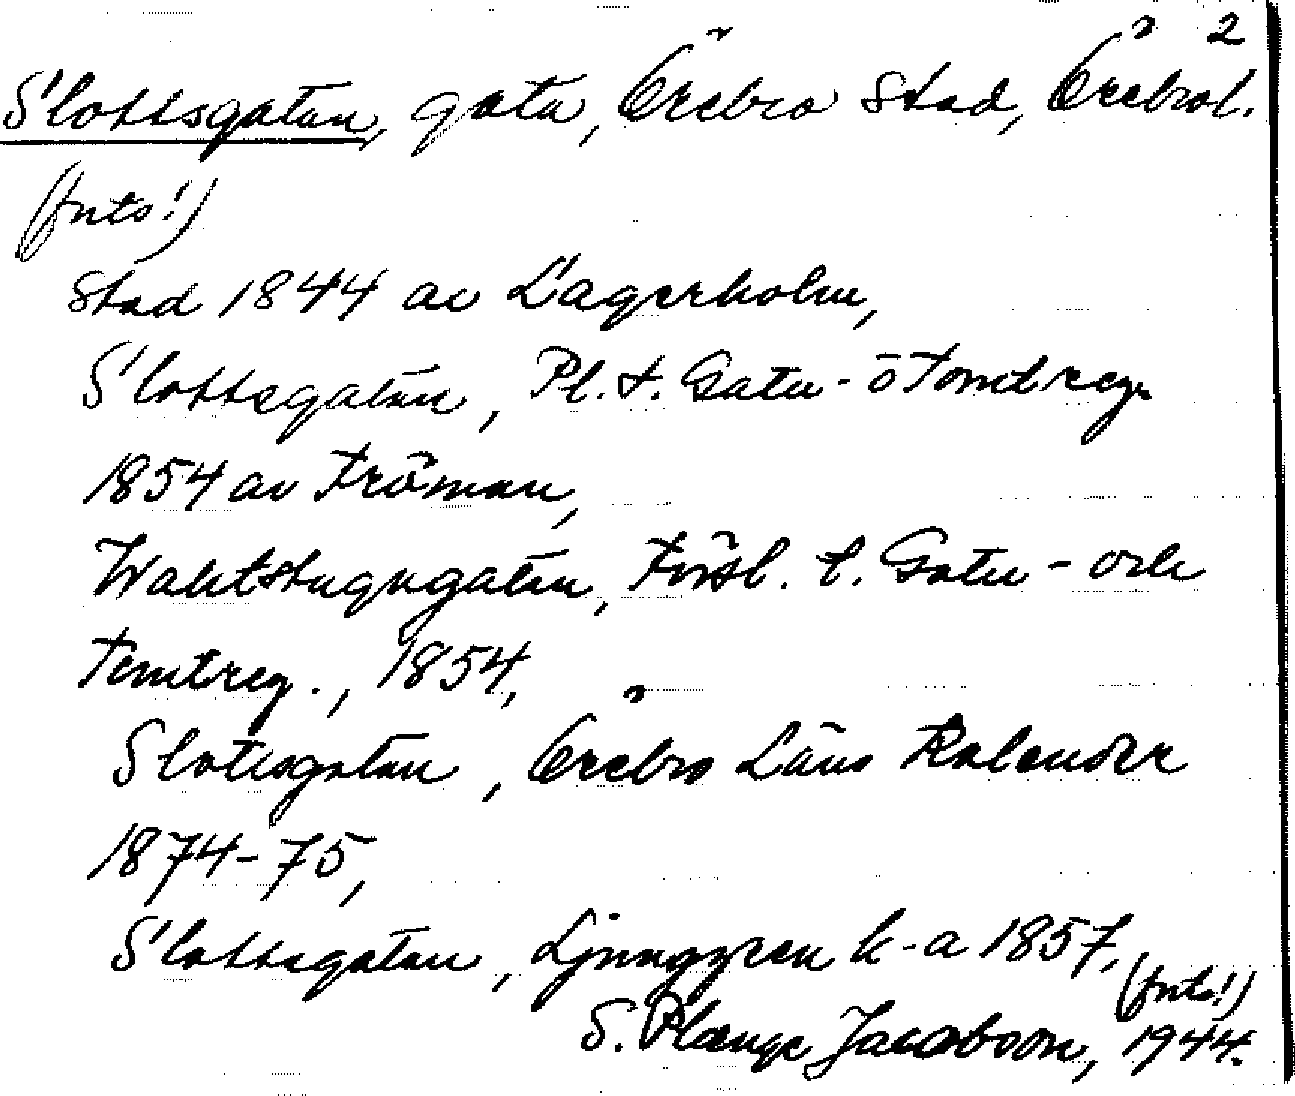 2
Slottsgatan, gata, Örebro stad, Örebrol.
(forts!)
stad 1844 av Lagerholm,
Slottsgatan, Pl. t. Gatu- o Tomtreg.
1854 av Fröman,
Waktstugugatan, Försl. t. Gatu- och
Tomtreg., 1854,
Slottsgatan, Örebro Läns Kalender
1874-75,
Slottsgatan, Ljunggren k-a 1857,
(forts!)
S. Plænge Jacobson, 1944.